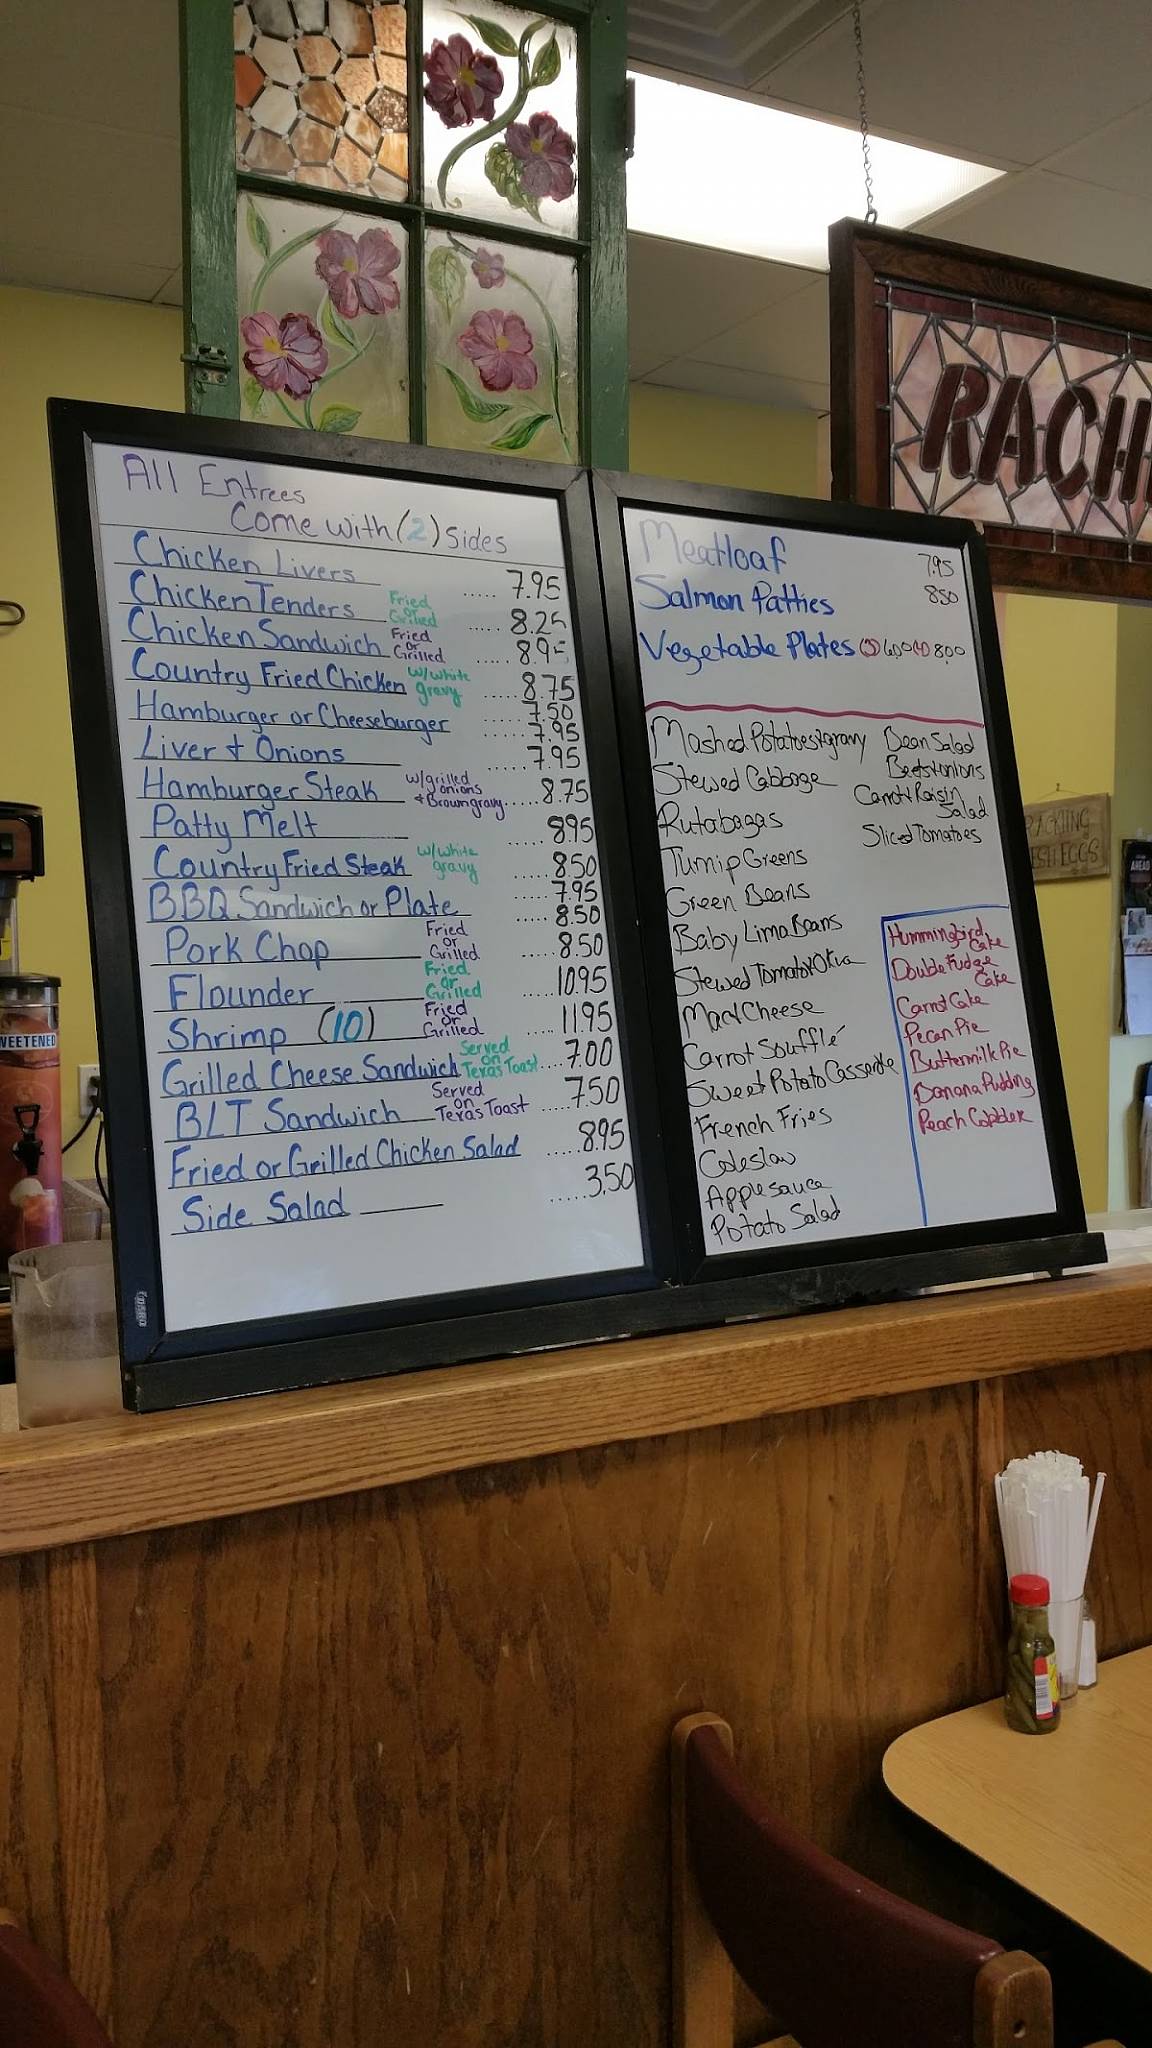 All Entrees
Come with (2) Sides
Chicken Livers ..... 7.95
Chicken Tenders Fried or Grilled ..... 8.25
Chicken Sandwich Fried or Grilled ..... 8.95
Country Fried Chicken w/white gravy ..... 8.75
Hamburger or Cheeseburger ..... 7.50 ..... 7.95
Liver + Onions ..... 7.95
Hamburger Steak w/grilled onions + Brown gravy ..... 8.75
Patty Melt ..... 8.95
Country Fried Steak w/white gravy ..... 8.50
BBQ Sandwich or Plate ..... 7.95 ..... 8.50
Pork Chop Fried or Grilled ..... 8.50
Flounder Fried or Grilled ..... 10.95
Shrimp (10) Fried or Grilled ..... 11.95
Grilled Cheese Sandwich Served on Texas Toast ..... 7.00
BLT Sandwich Served on Texas Toast ..... 7.50
Fried or Grilled Chicken Salad ..... 8.95
Side Salad ..... 3.50
Meatloaf 7.95
Salmon Patties 8.50
Vegetable Plates (4) 8.00
Mashed Potatoes + gravy
Stewed Cabbage
Rutabagas
Turnip Greens
Green Beans
Baby Lima Beans
Stewed Tomato + Okra
Mac + Cheese
Carrot Soufflé
Sweet Potato Casserole
French Fries
Coleslaw
Applesauce
Potato Salad
Bean Salad
Beets + onions
Carrot Raisin
Salad
Sliced Tomatoes
Hummingbird
Cake
Double Fudge
Cake
Carrot Cake
Pecan Pie
Buttermilk Pie
Banana Pudding
Peach Cobbler
RACH
ACKLING
ESH EGGS
WEETENED
AHEAD